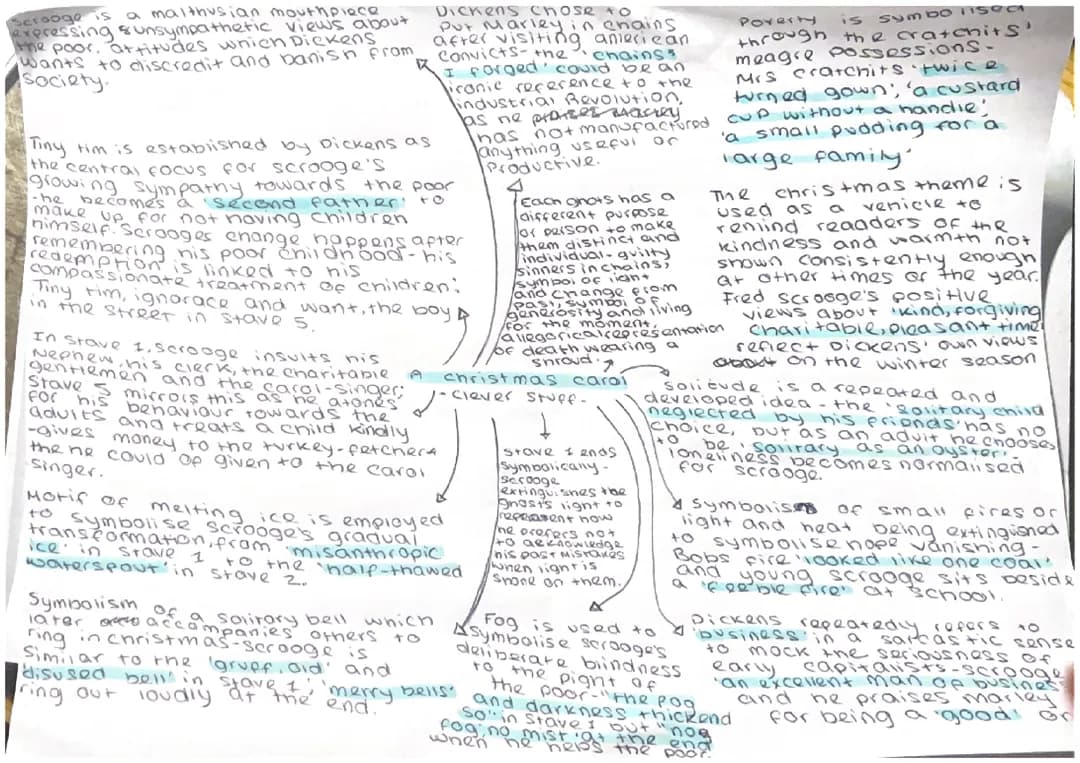 Scrooge is a malthusian mouthpiece
expressing & unsympathetic views about
the poor, attitudes which Dickens
wants to discredit and banish from
society.
Dickens chose to
put Marley in chains
after visiting american
convicts- the 'chains
I forged' could be an
ironic reference to the
industrial Revolution,
as he praises Marley
has not manufactured
anything useful or
productive.
Poverty is symbolised
through the cratchits'
meagre possessions-
Mrs cratchits 'twice
turned gown', 'a custard
cup without a handle',
'a small pudding for a
large family'
Tiny tim is established by Dickens as
the central focus for scrooge's
growing sympathy towards the poor
-he becomes a 'second father' to
make up for not having children
himself. Scrooges change happens after
remembering his poor childhood- his
redemption is linked to his
compassionate treatment of children:
Tiny tim, ignorace and want, the boy
in the street in stave 5.
Each ghots has a
different purpose
or person to make
them distinct and
individual- guilty
sinners in chains,
symbol of light
and change from
past, symbol of
generosity and living
for the moment,
allegorical representation
of death wearing a
shroud
The christmas theme is
used as a vehicle to
remind reaaders of the
kindness and warmth not
shown consistently enough
at other times of the year.
Fred scrooge's positive
views about 'kind, forgiving
charitable, pleasant time'
reflect Dickens' own views
about on the winter season
In stave 1, scrooge insults his
Nephew, his clerk, the charitable
gentlemen and the carol-singer;
Stave 5 mirrors this as he atones
for his behaviour towards the
adults and treats a child kindly
-gives money to the turkey-fetchers
the he could of given to the carol
singer.
A christmas carol
- clever stuff -
Solitude is a repeated and
developed idea- the 'solitary child
neglected by his friends' has no
choice, but as an adult he chooses
to be 'solitary as an oyster'-
loneliness becomes normalised
for scrooge.
Stave 1 ends
symbolically-
scrooge
extinguishes the
ghosts light to
represent how
he prefers not
to acknowledge
his past mistakes
when light is
shone on them.
Motif of melting ice is employed
to symbolise scrooge's gradual
transformation, from 'misanthropic
ice' in stave 1 to the 'half-thawed
waterspout' in stave 2.
Symbolism of small fires or
light and heat being extingished
to symbolise hope vanishing-
Bobs fire 'looked like one coal'
and young scrooge sits beside
a 'feeble fire' at school.
Symbolism of a solitary bell which
later accompanies others to
ring in christmas- scrooge is
similar to the 'gruff old' and
disused bell' in stave 1, 'merry bells'
ring out loudly at the end.
Fog is used to
symbolise scrooge's
deliberate blindness
to the plight of
the poor- 'the fog
and darkness thickend
so' in stave 1 but 'nog
fog, no mist' at the end
when he helps the poor.
Dickens repeatedly refers to
'business' in a sarcastic sense
to mock the seriousness of
early capitalists- scrooge
'an excellent man of busines
and he praises marley
for being a 'good'